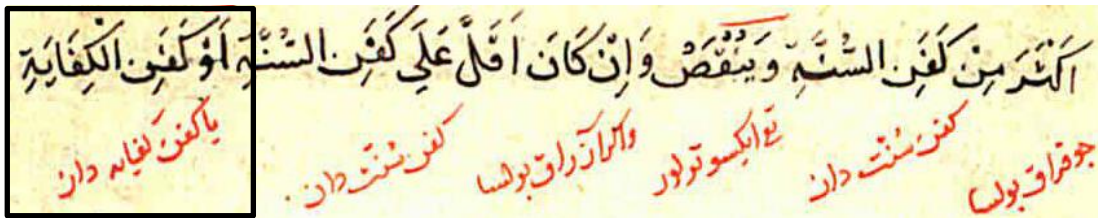 اَكْثَرَ مِنْ كَفَنِ السُّنَّةِ وَيَنْقُصُ وَاِنْ كَانَ اَقَلَّ عَلَي كَفَنِ السُّنَّةِ اَوْ كَفَنِ الْكِفَايَةِ
جوقراق بولسا كفن سُنّت دان اكسوتولور واكر آزراق بولسا كفن سُنّت دان يا كفن كفايه دان